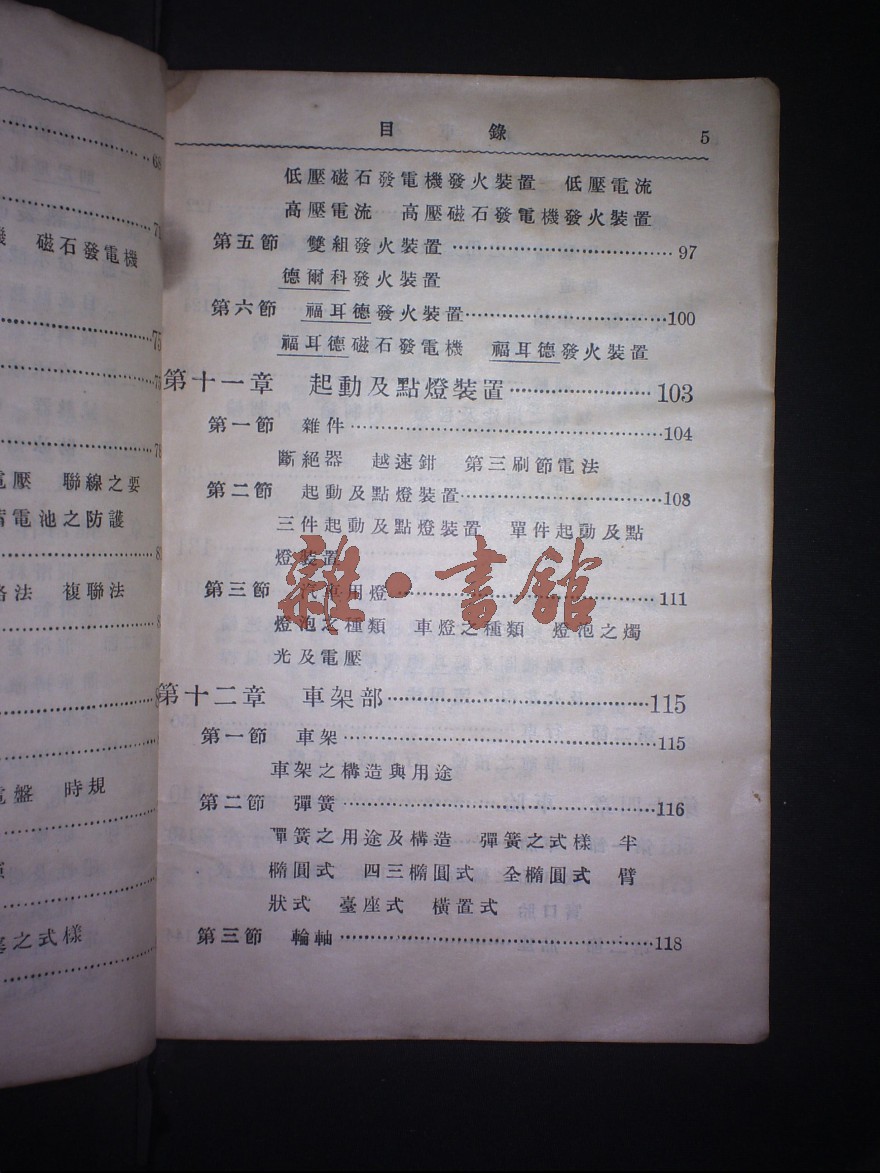 68
71
機 磁石發電機
75
78
電壓 聯線之要
蓄電池之防護
路法 複聯法
電盤 時規
之式樣
目 錄 5
低壓磁石發電機發火裝置 低壓電流
高壓電流 高壓磁石發電機發火裝置
第五節 雙組發火裝置 97
德爾科發火裝置
第六節 福耳德發火裝置 100
福耳德磁石發電機 福耳德發火裝置
第十一章 起動及點燈裝置 103
第一節 雜件 104
斷絕器 越速鉗 第三刷節電法
第二節 起動及點燈裝置 108
三件起動及點燈裝置 單件起動及點
燈裝置
第三節 汽車用燈 111
燈泡之種類 車燈之種類 燈泡之燭
光及電壓
第十二章 車架部 115
第一節 車架 115
車架之構造與用途
第二節 彈簧 116
彈簧之用途及構造 彈簧之式樣 半
橢圓式 四三橢圓式 全橢圓式 臂
狀式 臺座式 橫置式
第三節 輪軸 118
雜·書館